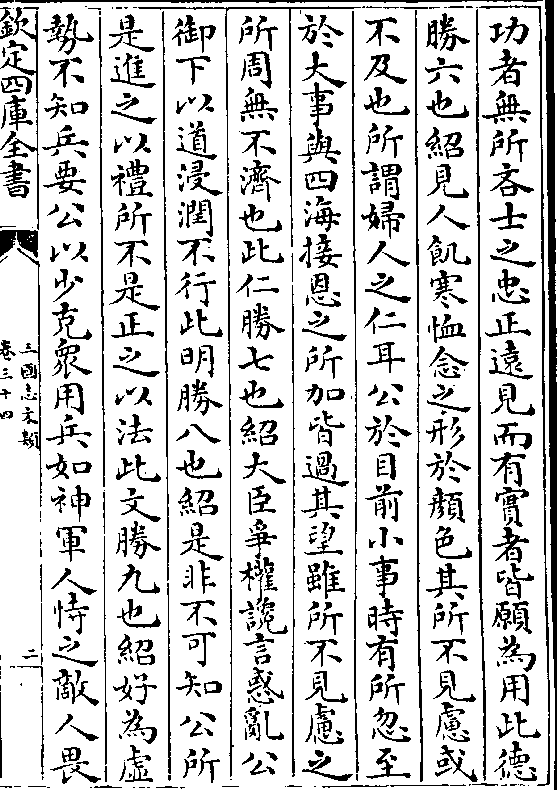 功者無所吝士之忠正遠見而有實者皆願為用此德
勝六也紹見人飢寒恤念之形於顔色其所不見慮或
不及也所謂婦人之仁耳公於目前小事時有所忽至
於大事與四海接恩之所加皆過其望雖所不見慮之
所周無不濟也此仁勝七也紹大臣爭權讒言惑亂公
御下以道浸潤不行此明勝八也紹是非不可知公所
是進之以禮所不是正之以法此文勝九也紹好為虛
勢不知兵要公以少克衆用兵如神軍人恃之敵人畏
欽定四庫全書
三國志文類
卷三十四
二